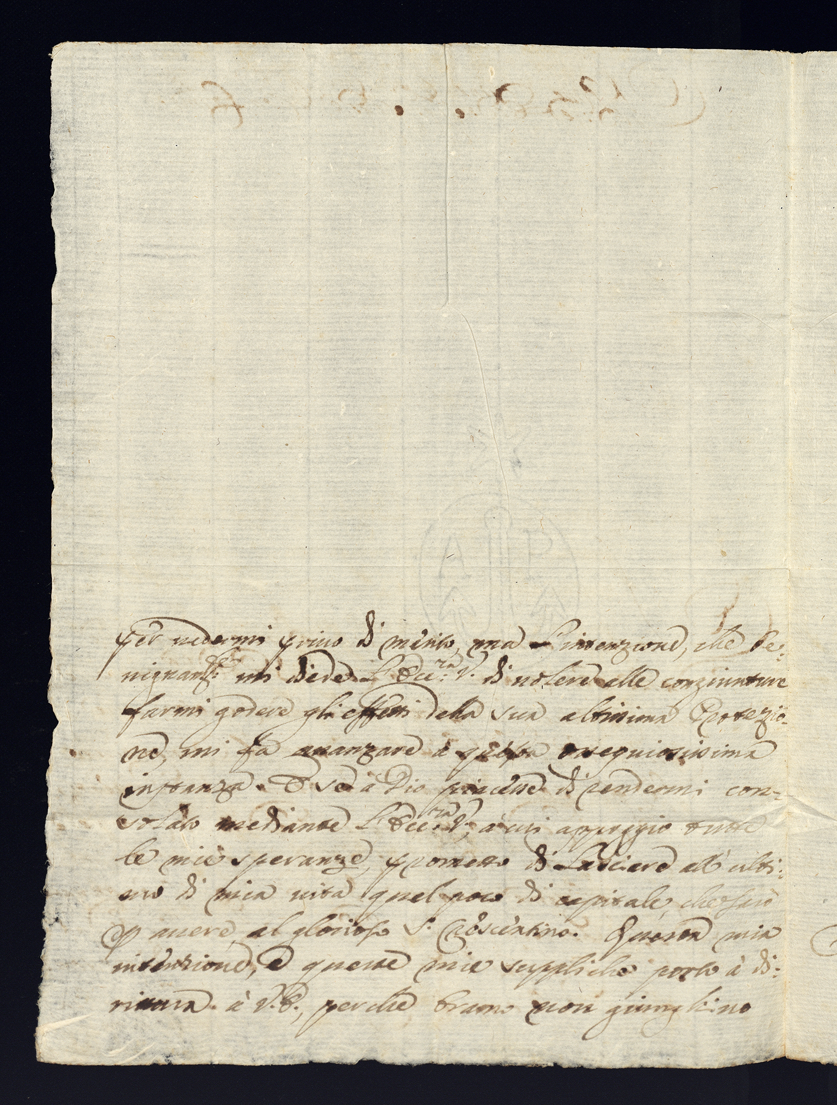 per vedermi privo di merito, ma l'intenzione, che be-
nignam.te mi diede l'Ecc.za V. di volere alle congiunture
farmi godere gli effetti della sua altissima Protezio-
ne, mi fa avanzare à questa ossequiosissima
instanza. E se à Dio piacesse di rendermi con-
solato mediante l'Ecc.za V., a cui appoggio tutte
le mie speranze, prometto di lasciare all'ulti-
mo di mia vita quel poco di capitale che sarò
p avere, al glorioso S. Questa mia
intenzione, e queste mie suppliche porto à di-
rittura à V.E., perche bramo non giunghino
A P